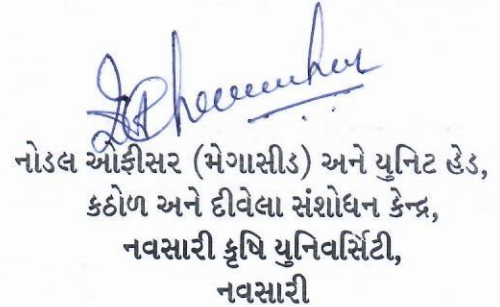 નોડલ ઓફીસર (મેગાસીડ) અને યુનિટ હેડ,
કઠોળ અને દીવેલા સંશોધન કેન્દ્ર,
નવસારી કૃષિ યુનિવર્સિટી,
નવસારી